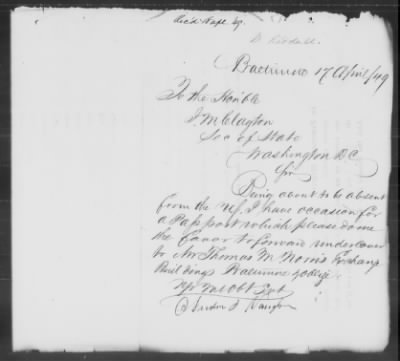 Baltimore 17 April /49
To the Honble
J M Clayton
Sec of State
Washington DC
Sir
Being about to be absent
from the US, I have occasion for
a Passport which please do me
the favor to forward under cover
to Mr Thomas M Norris Exchange
Buildings Baltimore &
Yr Mo Obt Svt